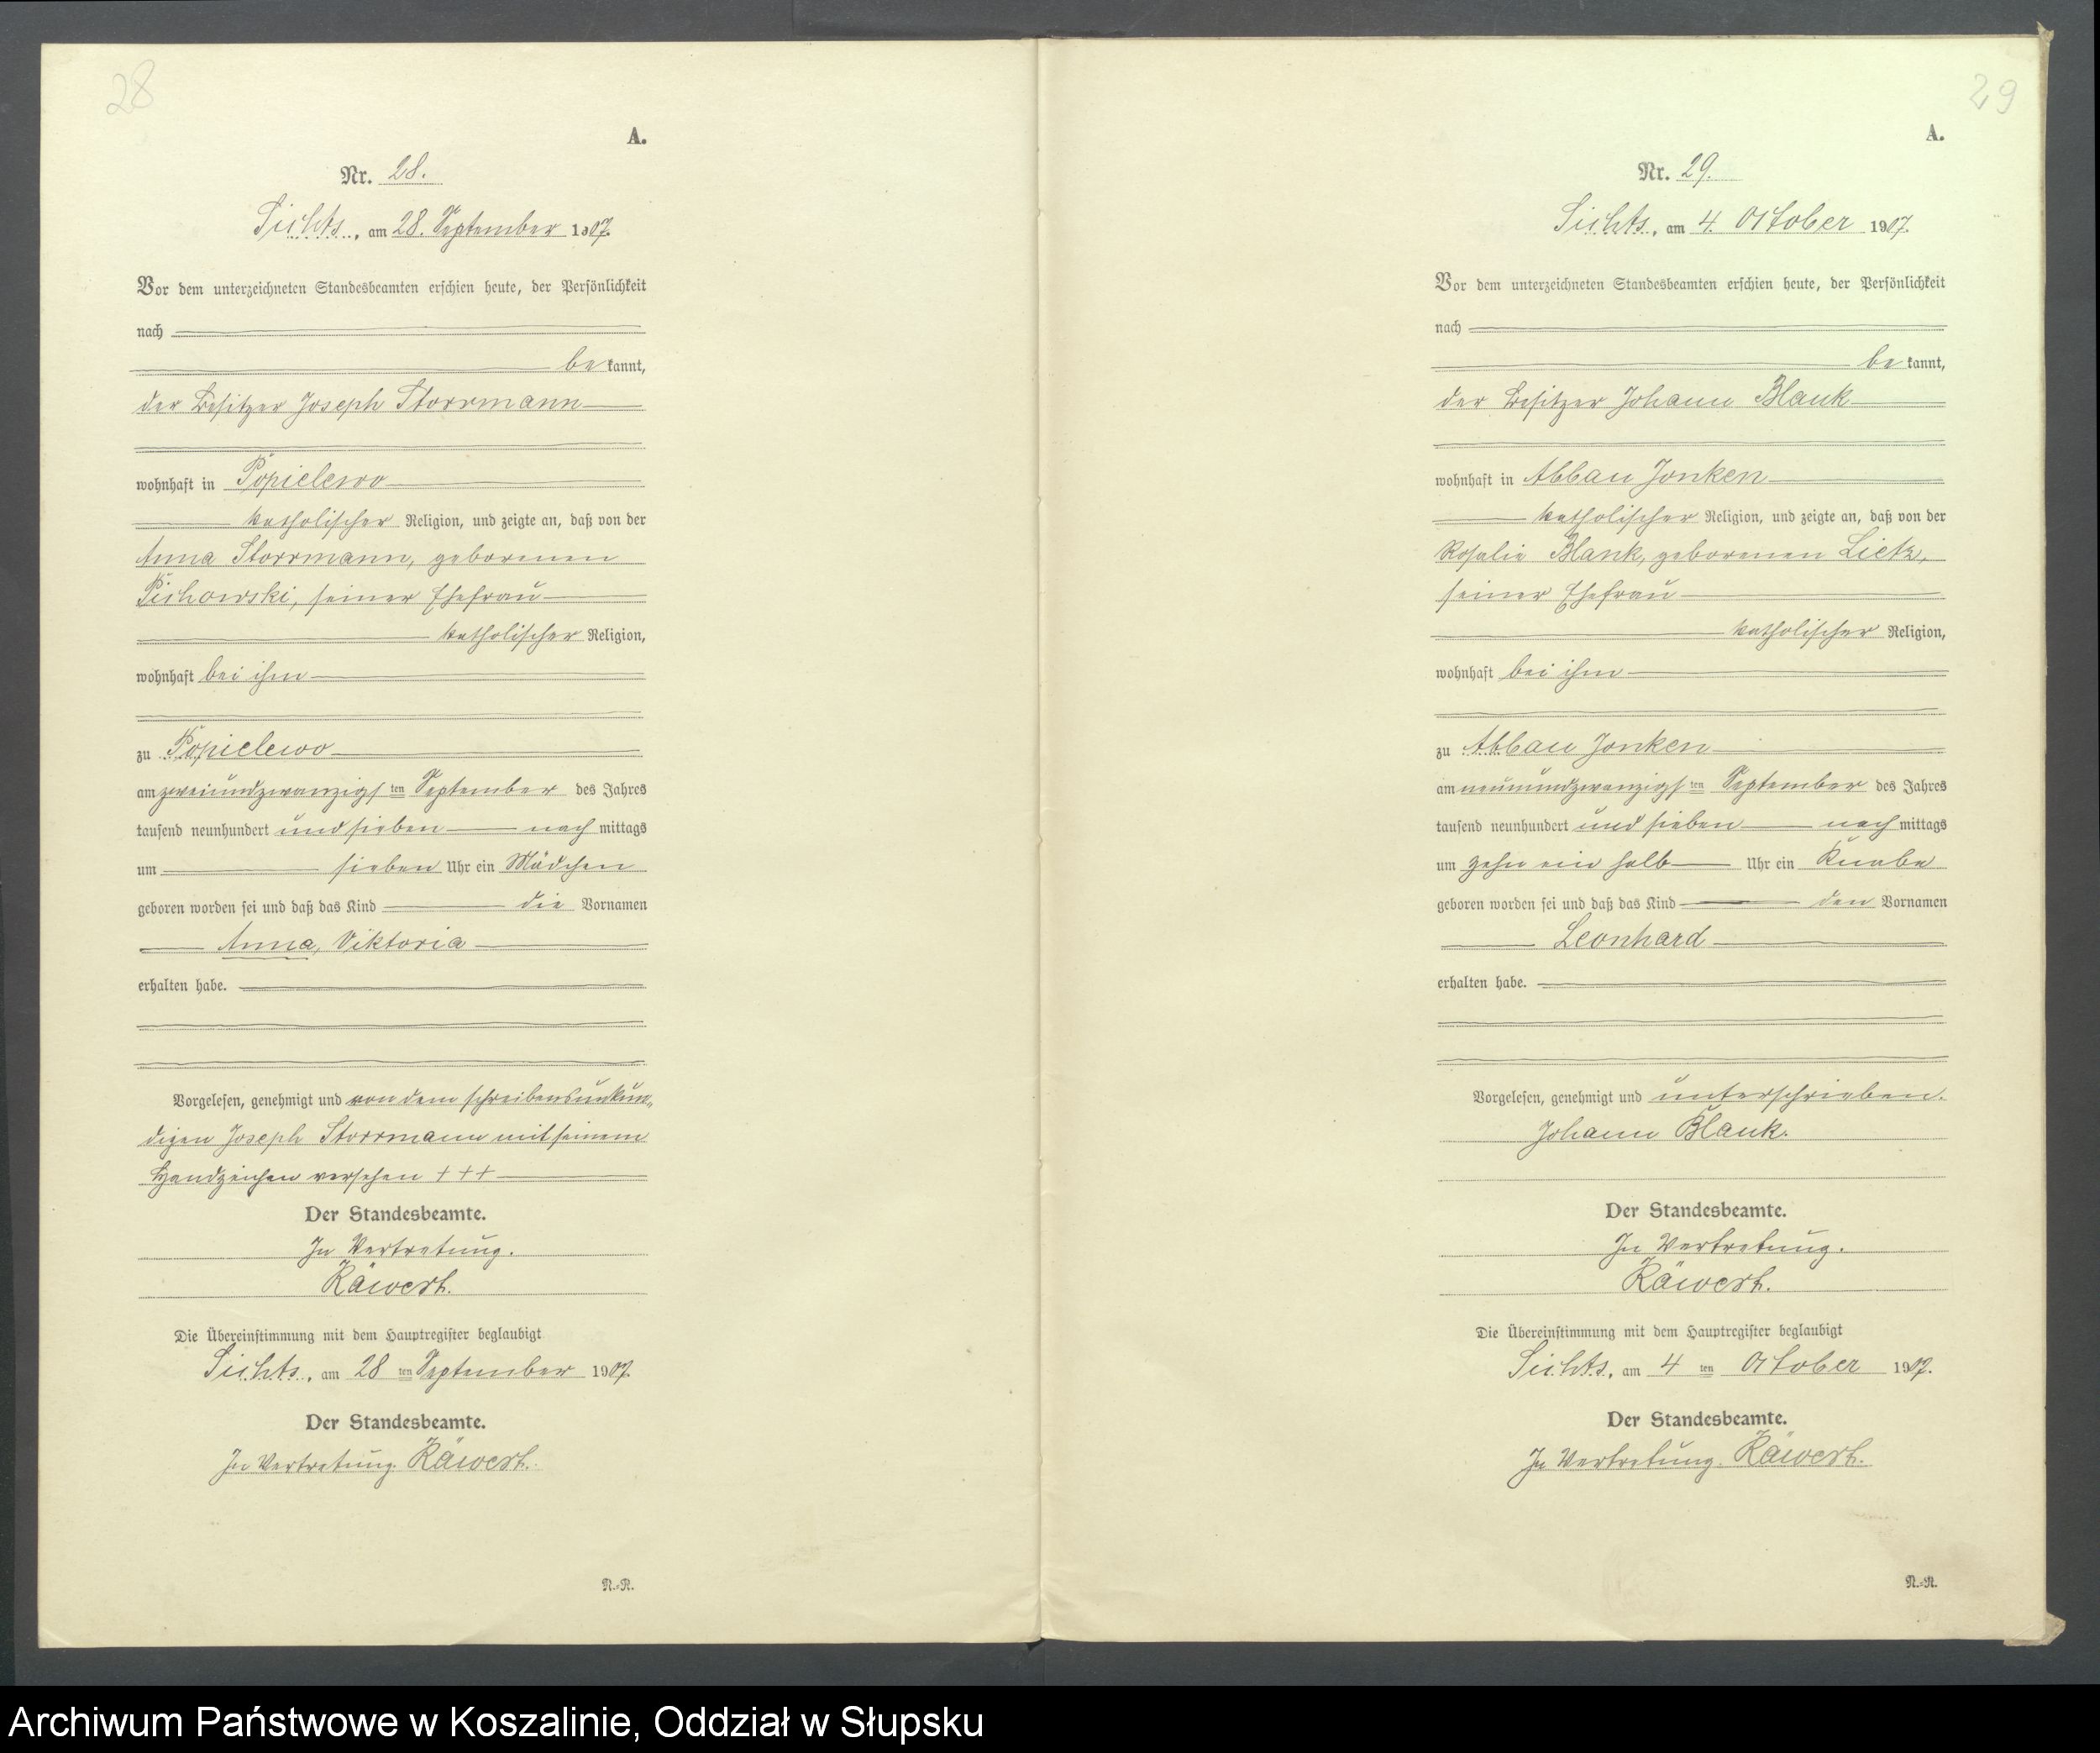 28
A.
Nr. 28.
Sichts, am 28. September 1907.
Vor dem unterzeichneten Standesbeamten erschien heute, der Persönlichkeit
nach
be kannt,
der Besitzer Joseph Storrmann
wohnhaft in Popielewo
katholischer Religion, und zeigte an, daß von der
Anna Storrmann, geborenen
Pichowski, seiner Ehefrau
katholischer Religion,
wohnhaft bei ihm
zu Popielewo
am zweiundzwanzigsten September des Jahres
tausend neunhundert und sieben nach mittags
um sieben Uhr ein Mädchen
geboren worden sei und daß das Kind die Vornamen
Anna, Viktoria
erhalten habe.
Vorgelesen, genehmigt und von dem schreibensunkun-
digen Joseph Storrmann mit seinem
Handzeichen versehen +++
Der Standesbeamte.
In Vertretung.
Räwert.
Die Übereinstimmung mit dem Hauptregister beglaubigt
Sichts, am 28 ten September 1907.
Der Standesbeamte.
In Vertretung. Räwert.
N.-R.
29
A.
Nr. 29.
Sichts, am 4. October 1907.
Vor dem unterzeichneten Standesbeamten erschien heute, der Persönlichkeit
nach
be kannt,
der Besitzer Johann Blank
wohnhaft in Abbau Jonken
katholischer Religion, und zeigte an, daß von der
Rosalie Blank, geborenen Lietz,
seiner Ehefrau
katholischer Religion,
wohnhaft bei ihm
zu Abbau Jonken
am neunundzwanzigsten September des Jahres
tausend neunhundert und sieben nach mittags
um zehn ein halb Uhr ein Knabe
geboren worden sei und daß das Kind den Vornamen
Leonhard
erhalten habe.
Vorgelesen, genehmigt und unterschrieben.
Johann Blank.
Der Standesbeamte.
In Vertretung.
Räwert.
Die Übereinstimmung mit dem Hauptregister beglaubigt
Sichts, am 4 ten October 1907.
Der Standesbeamte.
In Vertretung. Räwert.
N.-R.
Archiwum Państwowe w Koszalinie, Oddział w Słupsku